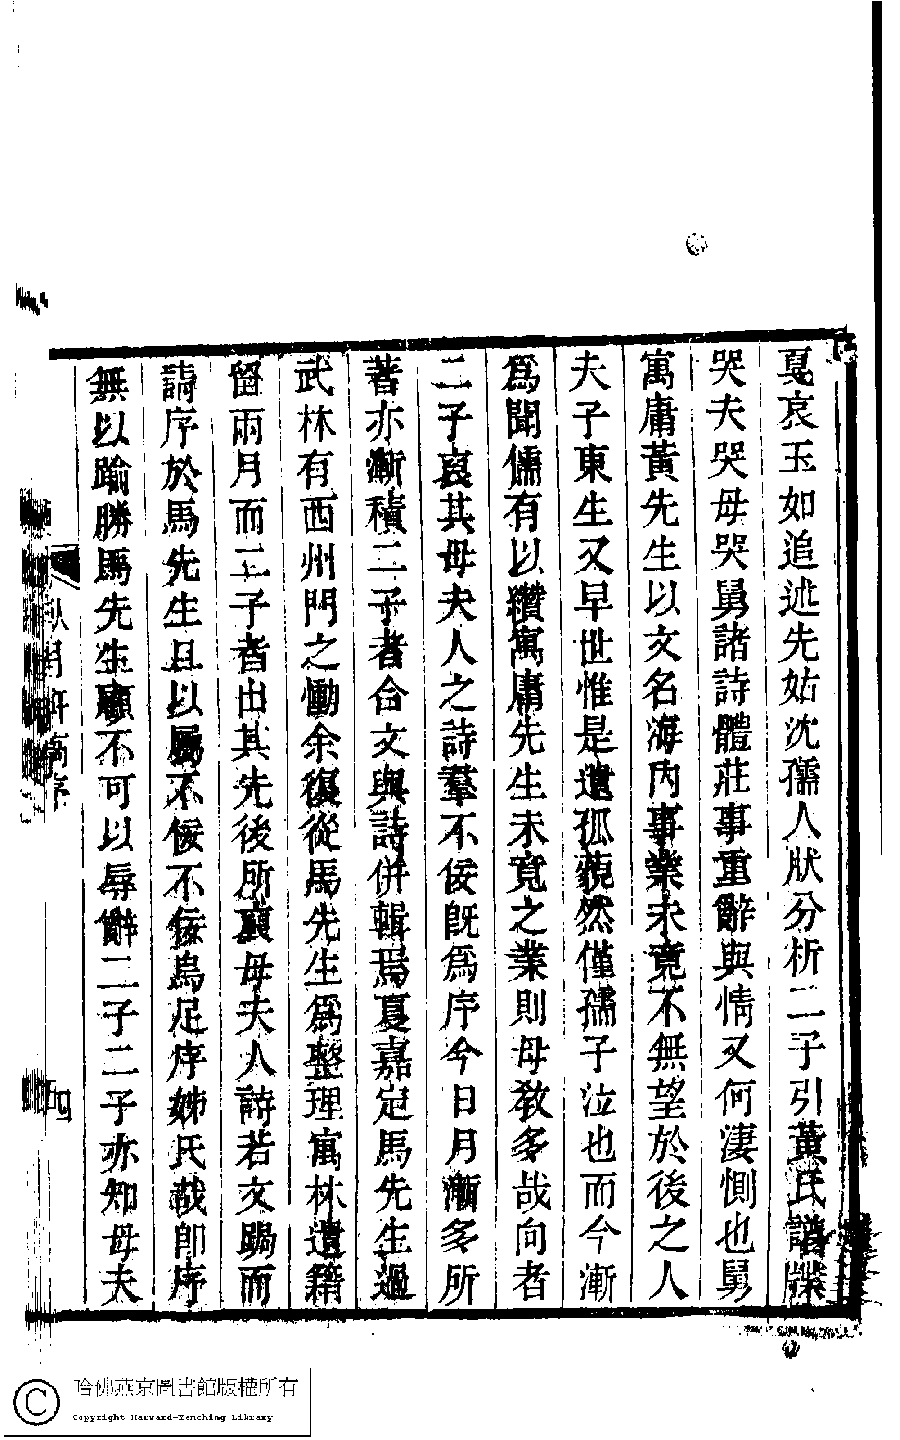 戛哀玉如追述先姑沈孺人狀分析二子引黃氏譜牒
哭夫哭母哭舅諸詩體莊事重辭與情又何淒惻也舅
寓庸黃先生以文名海內事業未竟不無望於後之人
夫子東生又早世惟是遺孤藐然僅孺子泣也而今漸
為聞儒有以纘寓庸先生未竟之業則母教多哉向者
二子哀其母夫人之詩羣不佞旣為序今日月漸多所
著亦漸積二子者合文與詩併輯焉夏嘉定馬先生過
武林有西州門之慟余復從馬先生為整理寓林遺籍
留兩月而二子者出其先後所裒母夫人詩若文跼而
請序於馬先生且以屬不佞不佞烏足序姊氏哉即序
無以踰勝馬先生顧不可以辱辭二子二子亦知母夫
月軒稿序
四
哈佛燕京圖書館版權所有
Copyright Harvard-Yenching Library